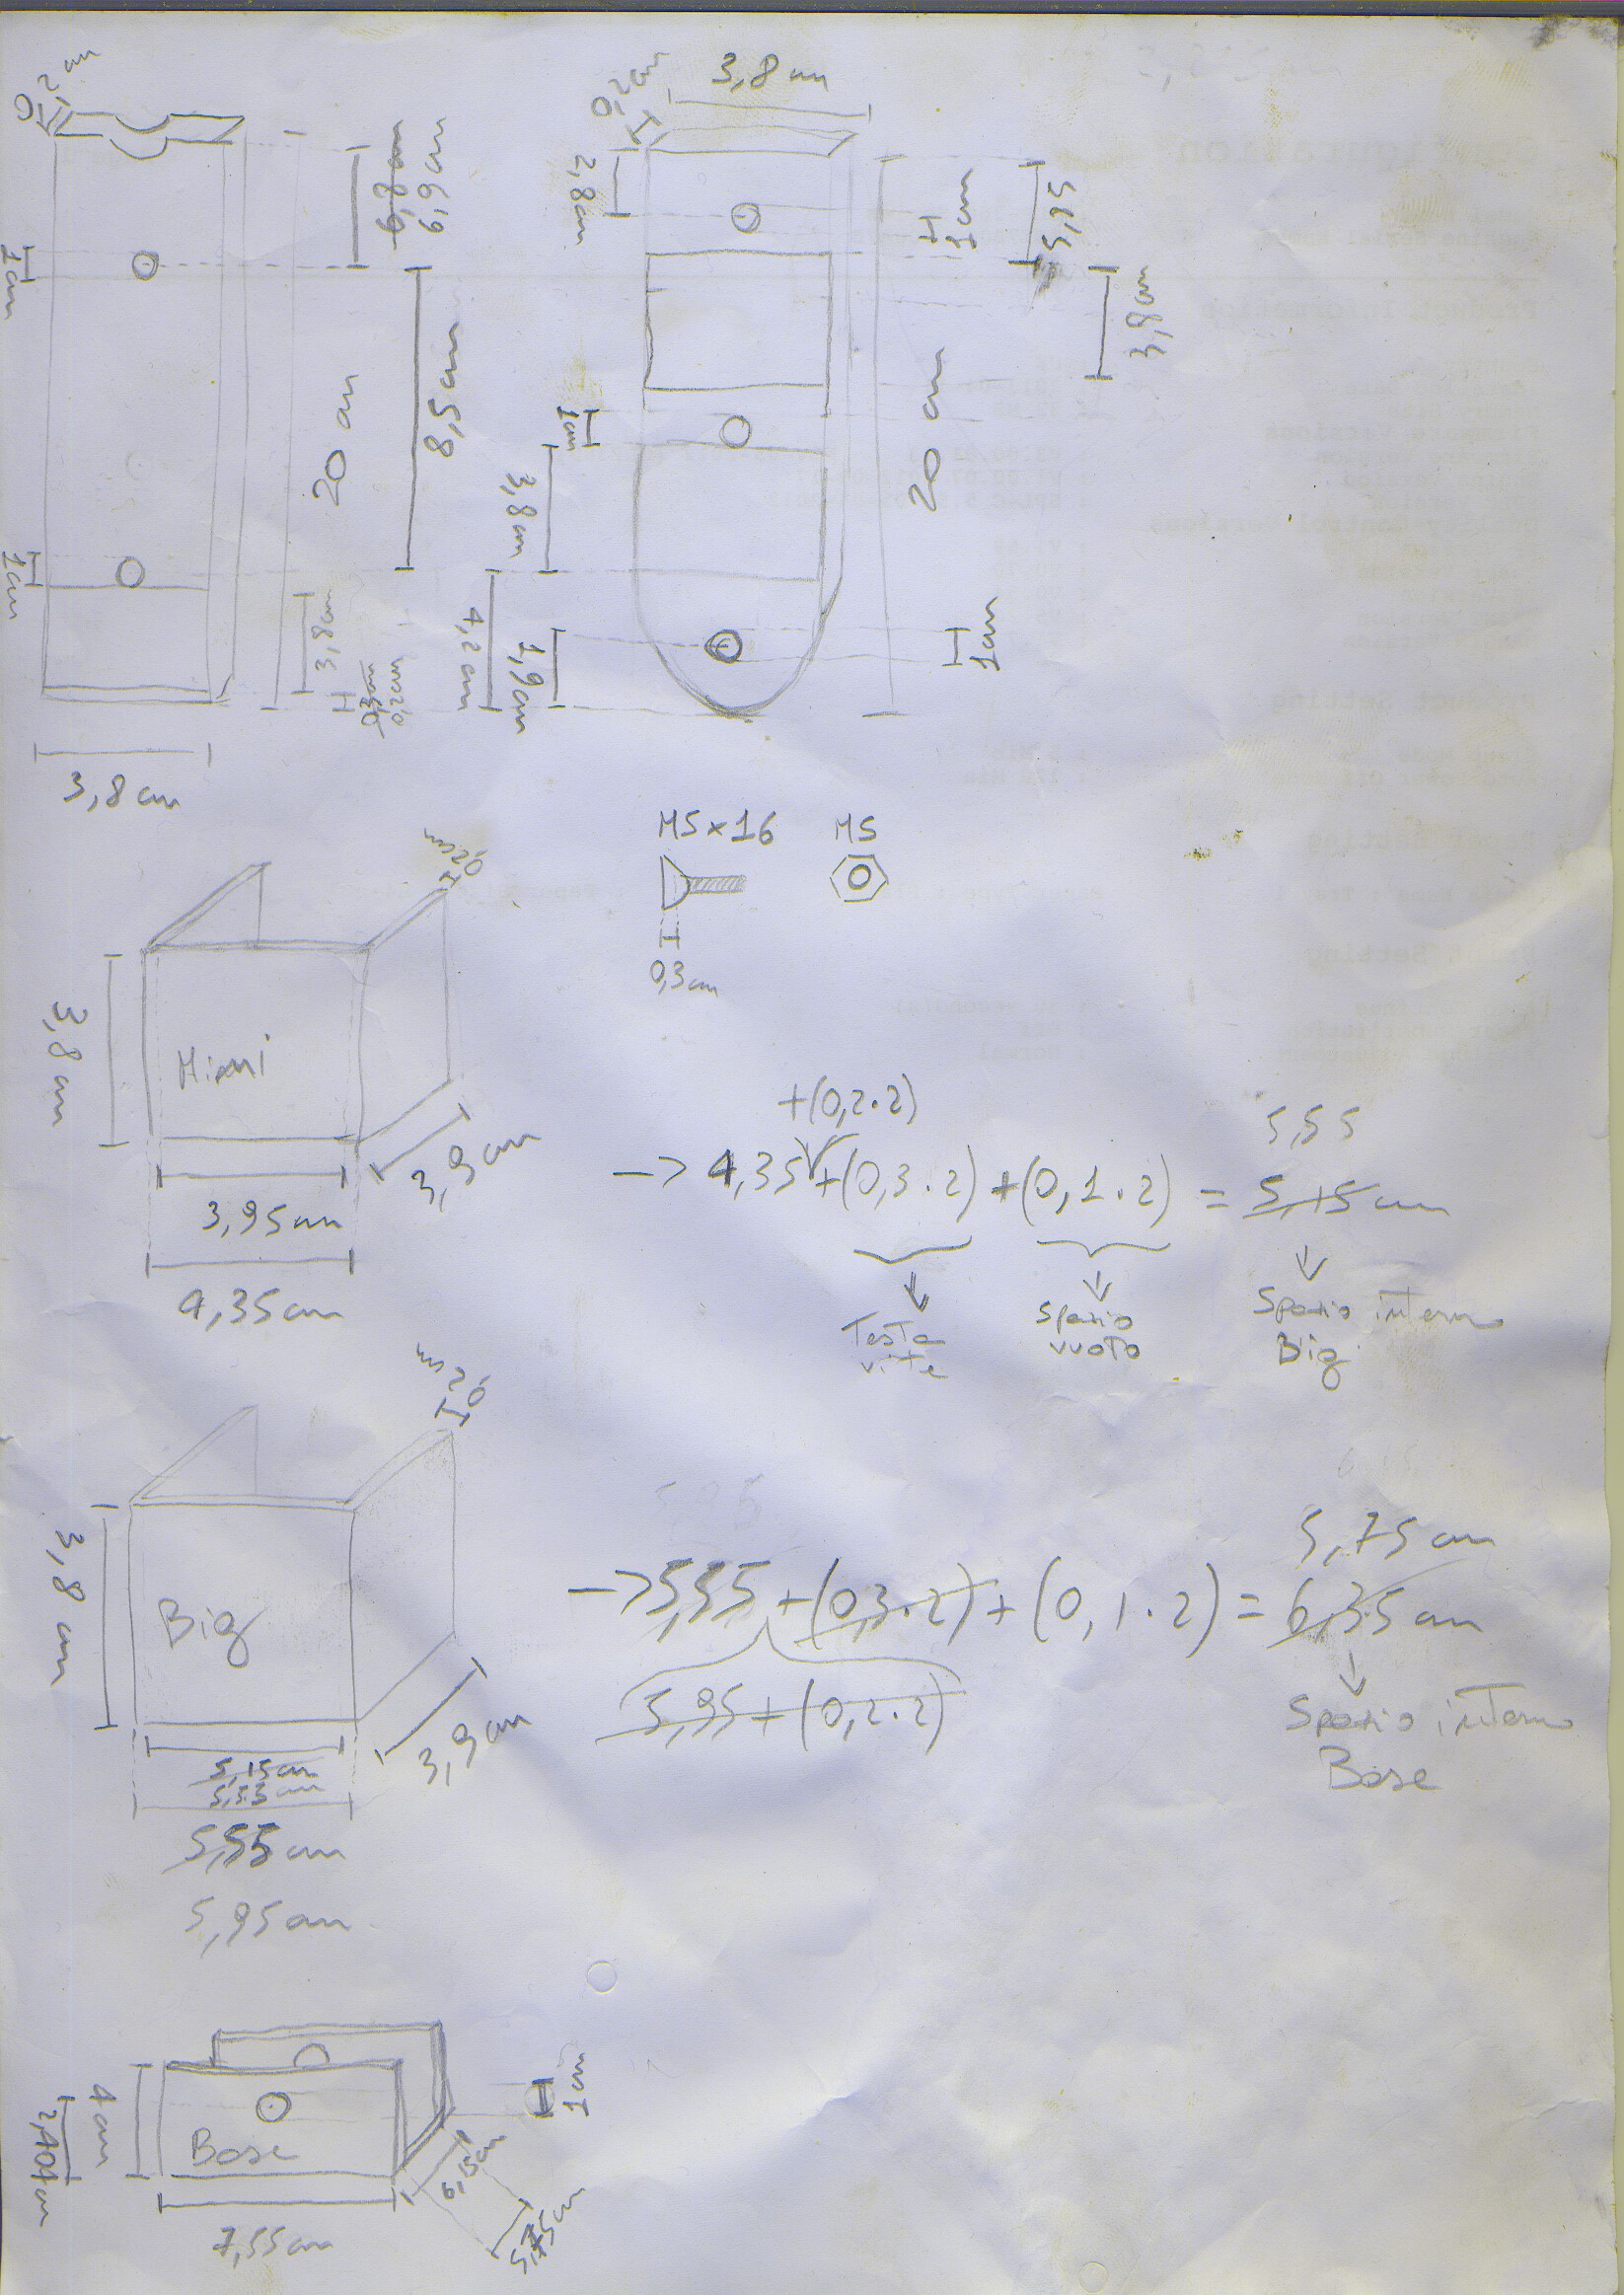 0,2 cm
6,8 cm
6,9 cm
1 cm
20 cm
8,5 cm
1 cm
3,8 cm
0,2 cm
3,8 cm
3,8 cm
0,2 cm
2,8 cm
1 cm
3,9 cm
1 cm
20 cm
3,8 cm
4,2 cm
1,9 cm
1 cm
M5 x 16
M5
0,3 cm
0,2 cm
3,8 cm
Mini
3,9 cm
3,95 cm
4,35 cm
+(0,2·2)
5,55
-> 4,35 +(0,3·2) +(0,1·2) = 5,15 cm
Testa
vite
Spazio
vuoto
Spazio interno
Big
0,2 cm
3,8 cm
Big
3,9 cm
5,15 cm
5,55 cm
5,55 cm
5,95 cm
5,75 cm
-> 5,55 +(0,3·2) +(0,1·2) = 6,35 cm
5,95 +(0,2·2)
Spazio interno
Base
4 cm
Base
1 cm
6,15 cm
5,75 cm
7,55 cm